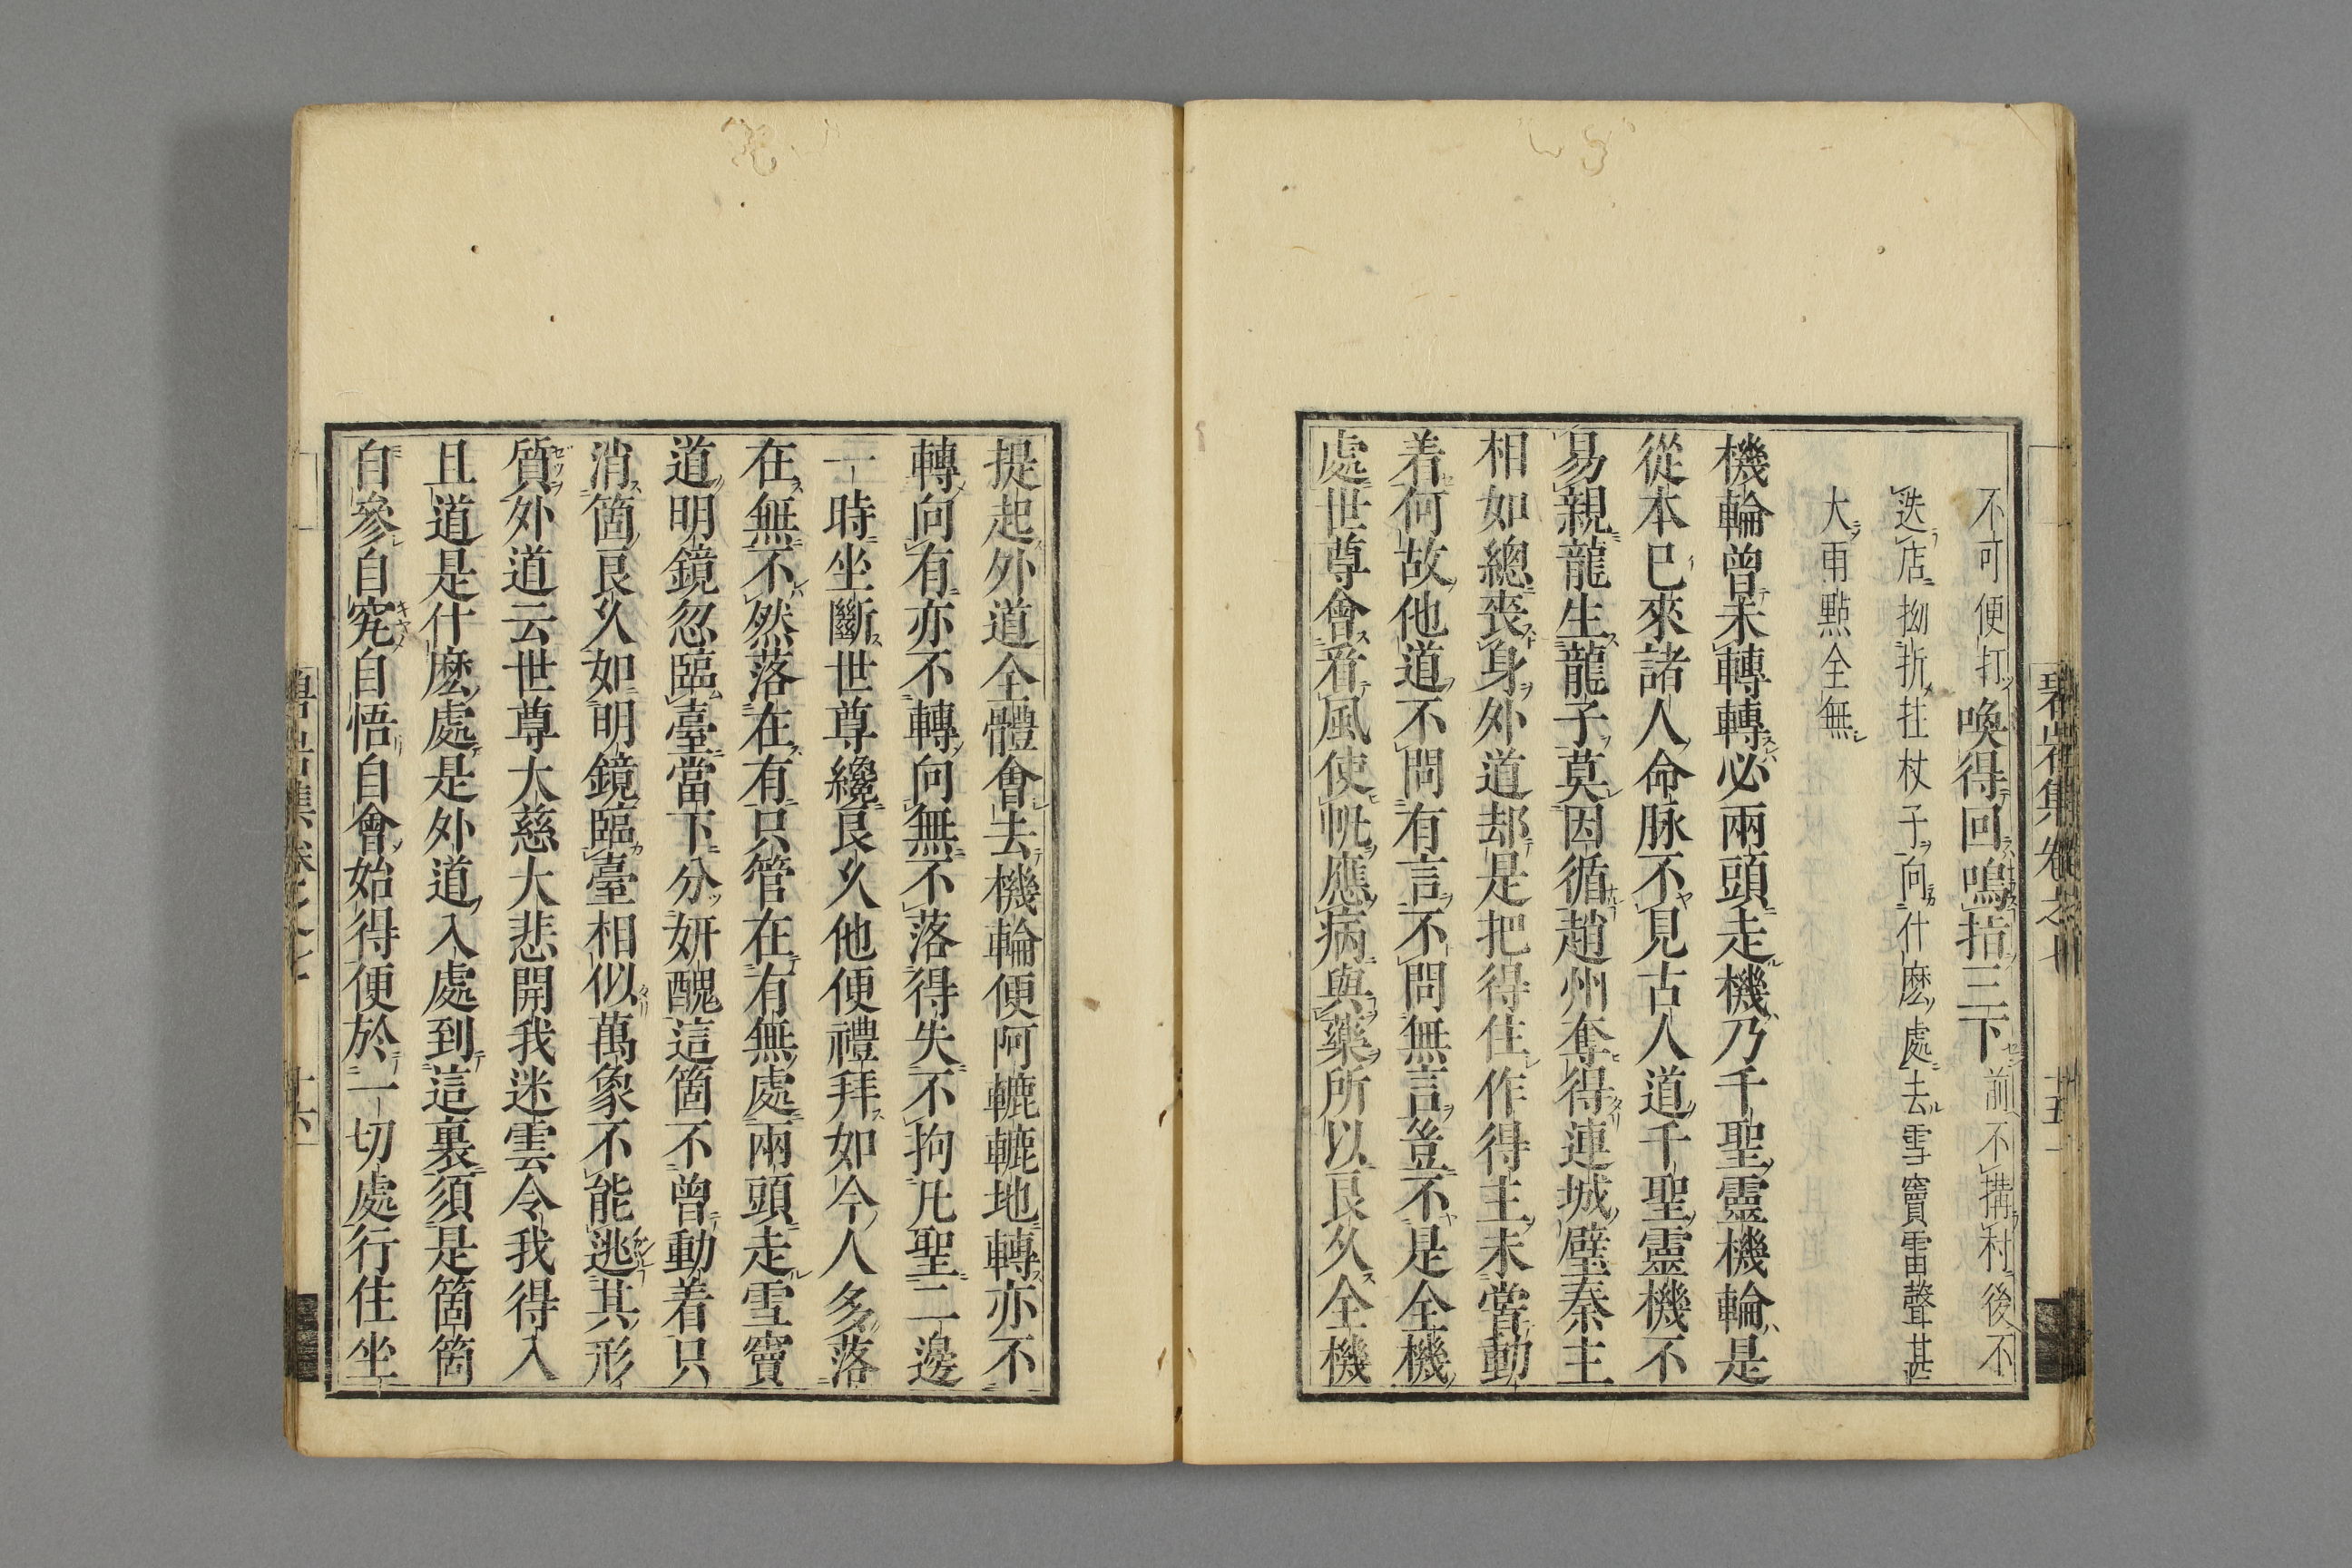 碧岩集卷之七
十五
不可便打喚得回鳴指三下前不搆村後不
迭店拗折拄杖子向什麽處去雪竇雷聲甚
大雨點全無
機輪曾未轉轉必兩頭走機乃千聖靈機輪是
從本已來諸人命脉不見古人道千聖靈機不
易親龍生龍子莫因循趙州奪得連城璧秦主
相如總喪身外道却是把得住作得主未嘗動
着何故他道不問有言不問無言豈不是全機
處世尊會看風使帆應病與藥所以良久全機
提起外道全體會去機輪便阿轆轆地轉亦不
轉向有亦不轉向無不落得失不拘凡聖二邊
一時坐斷世尊纔良久他便禮拜如今人多落
在無不然落在有只管在有無處兩頭走雪竇
道明鏡忽臨臺當下分妍醜這箇不曾動着只
消箇良久如明鏡臨臺相似萬象不能逃其形
質外道云世尊大慈大悲開我迷雲令我得入
且道是什麽處是外道入處到這裏須是箇箇
自參自究自悟自會始得便於一切處行住坐
碧岩集卷之七
十六